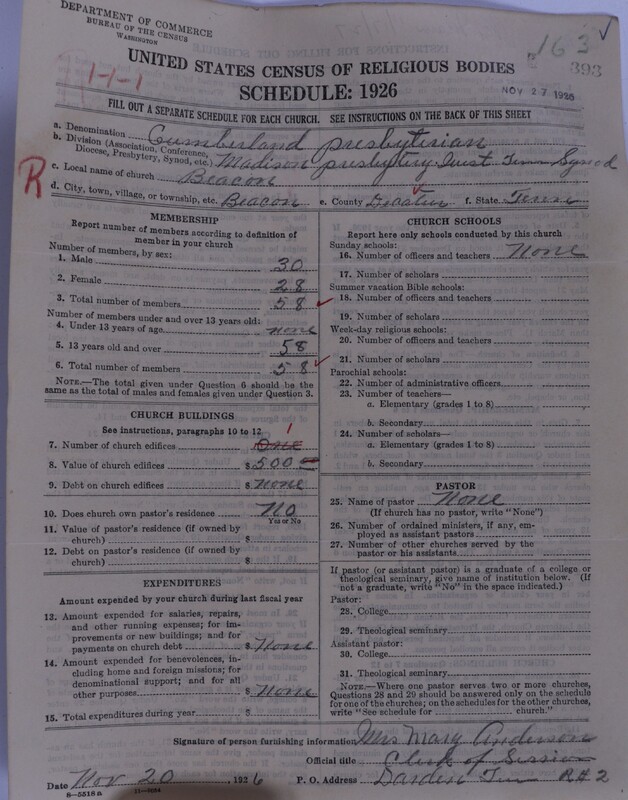 DEPARTMENT OF COMMERCE
BUREAU OF THE CENSUS
WASHINGTON
163
393
1-1-1
UNITED STATES CENSUS OF RELIGIOUS BODIES
SCHEDULE: 1926
NOV 27 1926
FILL OUT A SEPARATE SCHEDULE FOR EACH CHURCH. SEE INSTRUCTIONS ON THE BACK OF THIS SHEET
a. Denomination Cumberland presbyterian
b. Division (Association, Conference, Diocese, Presbytery, Synod, etc.) Madison presbytery West Tenn Synod
R
c. Local name of church Beacon
d. City, town, village, or township, etc. Beacon e. County Decatur f. State Tenn
MEMBERSHIP
Report number of members according to definition of
member in your church
Number of members, by sex:
1. Male 30
2. Female 28
3. Total number of members 58
Number of members under and over 13 years old:
4. Under 13 years of age none
5. 13 years old and over 58
6. Total number of members 58
NOTE.—The total given under Question 6 should be
same as the total of males and females given under Question 3.
CHURCH BUILDINGS
See instructions, paragraphs 10 to 12
1
7. Number of church edifices One
8. Value of church edifices $500
9. Debt on church edifices $ None
10. Does church own pastor's residence No
Yes or No
11. Value of pastor's residence (if owned by
church) $
12. Debt on pastor's residence (if owned by
church) $
EXPENDITURES
Amount expended by your church during last fiscal year
13. Amount expended for salaries, repairs,
and other running expenses; for im-
provements or new buildings; and for
payments on church debt $ None
14. Amount expended for benevolences, in-
cluding home and foreign missions; for
denominational support; and for all
other purposes $ None
15. Total expenditures during year $
CHURCH SCHOOLS
Report here only schools conducted by this church
Sunday schools:
16. Number of officers and teachers None
17. Number of scholars
Summer vacation Bible schools:
18. Number of officers and teachers
19. Number of scholars
Week-day religious schools:
20. Number of officers and teachers
21. Number of scholars
Parochial schools:
22. Number of administrative officers
23. Number of teachers—
a. Elementary (grades 1 to 8)
b. Secondary
24. Number of scholars—
a. Elementary (grades 1 to 8)
b. Secondary
PASTOR
25. Name of pastor None
(If church has no pastor, write "None")
26. Number of ordained ministers, if any, em-
ployed as assistant pastors
27. Number of other churches served by the
pastor or his assistants
If pastor (or assistant pastor) is a graduate of a college or
theological seminary, give name of institution below. (If
not a graduate, write "No" in the space indicated.)
Pastor:
28. College
29. Theological seminary
Assistant pastor:
30. College
31. Theological seminary
NOTE.—Where one pastor serves two or more churches,
Questions 28 and 29 should be answered only on the schedule
for one of the churches; on the schedules for the other churches,
write "See schedule for church."
Signature of person furnishing information Mrs Mary Anderson
Official title Clerk of Session
Date Nov 20, 1926 P. O. Address Darden Tenn R#2
8-5518a